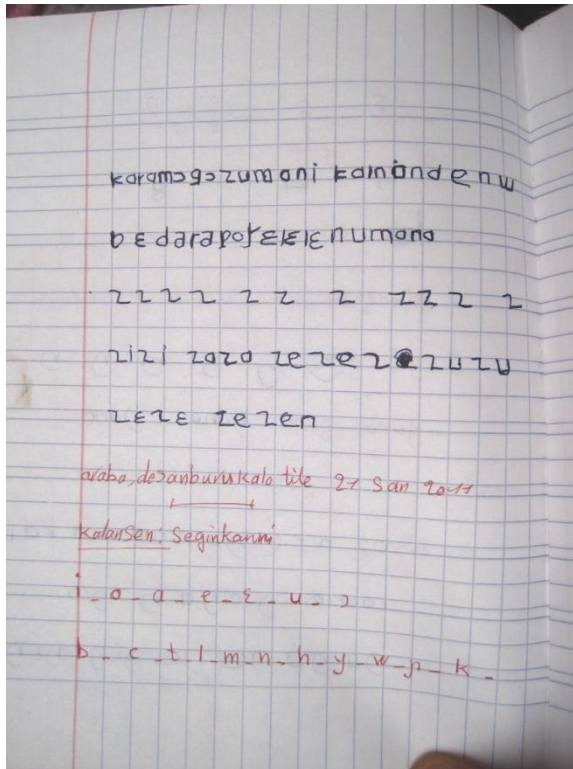 karamɔgɔ zumani
bɛ numana
z z z z z z z z z z z
zizi zozo zeze z zuzu
zɛzɛ zezen
araba, desanburukalo tile 21 san 2011
kalansen: seginkanni
i_o_a_e_ɛ_u_ɔ
b_c_t_l_m_n_h_y_w_ɲ_k_